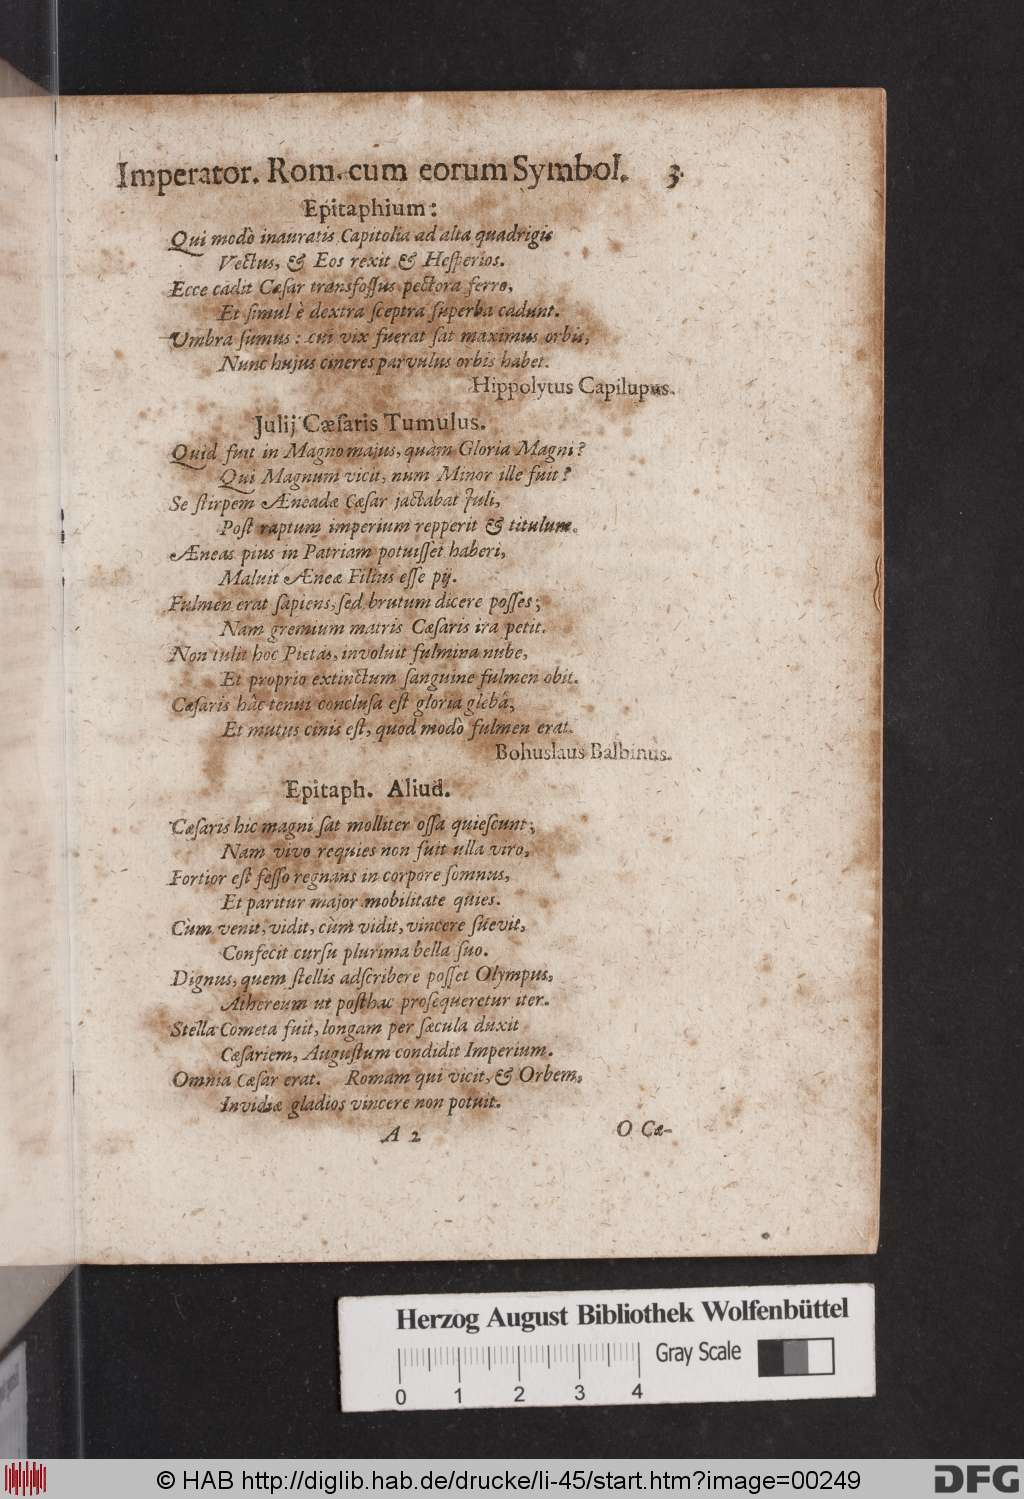 Imperator. Rom. cum eorum Symbol. 3.
Epitaphium:
Qui modò inauratis Capitolia ad alta quadrigis
Vectus, & Eos rexit & Hesperios.
Ecce cadit Cæsar transfossus pectora ferro,
Et simul è dextra sceptra superba cadunt.
Umbra sumus: cui vix fuerat sat maximus orbis,
Nunc hujus cineres parvulus orbis habet.
Hippolytus Capilupus.
Julij Cæsaris Tumulus.
Quid fuit in Magno majus, quàm Gloria Magni?
Qui Magnum vicit, num Minor ille fuit?
Se stirpem Æneadæ Cæsar jactabat Juli,
Post raptum imperium repperit & titulum.
Æneas pius in Patriam potuisset haberi,
Maluit Æneæ Filius esse pij.
Fulmen erat sapiens, sed brutum dicere posses;
Nam gremium matris Cæsaris ira petit.
Non tulit hoc Pietas, involuit fulmina nube,
Et proprio extinctum sanguine fulmen obit.
Cæsaris hâc tenui conclusa est gloria glebâ,
Et mutus cinis est, quod modò fulmen erat.
Bohuslaus Balbinus.
Epitaph. Aliud.
Cæsaris hic magni sat molliter ossa quiescunt;
Nam vivo requies non fuit ulla viro,
Fortior est fesso regnans in corpore somnus,
Et paritur major mobilitate quies.
Cùm venit, vidit, cùm vidit, vincere suevit,
Confecit cursu plurima bella suo.
Dignus, quem stellis adscribere posset Olympus,
Æthereum ut posthac prosequeretur iter.
Stella Cometa fuit, longam per sæcula duxit
Cæsariem, Augustum condidit Imperium.
Omnia Cæsar erat. Romam qui vicit, & Orbem,
Invidiæ gladios vincere non potuit.
A 2 O Cæ-
Herzog August Bibliothek Wolfenbüttel
Gray Scale
0 1 2 3 4
© HAB http://diglib.hab.de/drucke/li-45/start.htm?image=00249
DFG